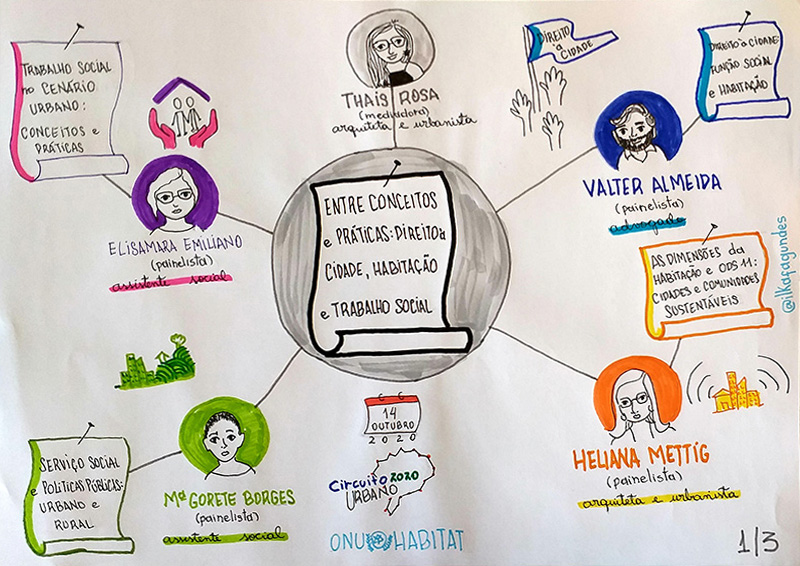 TRABALHO SOCIAL
no CENÁRIO
URBANO:
CONCEITOS e
PRÁTICAS
ELISAMARA EMILIANO
(painelista)
assistente social
THAIS ROSA
(mediadora)
arquiteta e urbanista
DIREITO
à
CIDADE
DIREITO à CIDADE:
FUNÇÃO SOCIAL
e HABITAÇÃO
VALTER ALMEIDA
(painelista)
advogado
ENTRE CONCEITOS
e PRÁTICAS: DIREITO à
CIDADE, HABITAÇÃO
e TRABALHO SOCIAL
AS DIMENSÕES da
HABITAÇÃO e ODS 11:
CIDADES e COMUNIDADES
SUSTENTÁVEIS
@ilkafagundes
HELIANA METTIG
(painelista)
arquiteta e urbanista
SERVIÇO SOCIAL
e POLÍTICAS PÚBLICAS:
URBANO e
RURAL
Mª GORETE BORGES
(painelista)
assistente social
14
OUTUBRO
2020
Circuito 2020
URBANO
ONU HABITAT
1/3